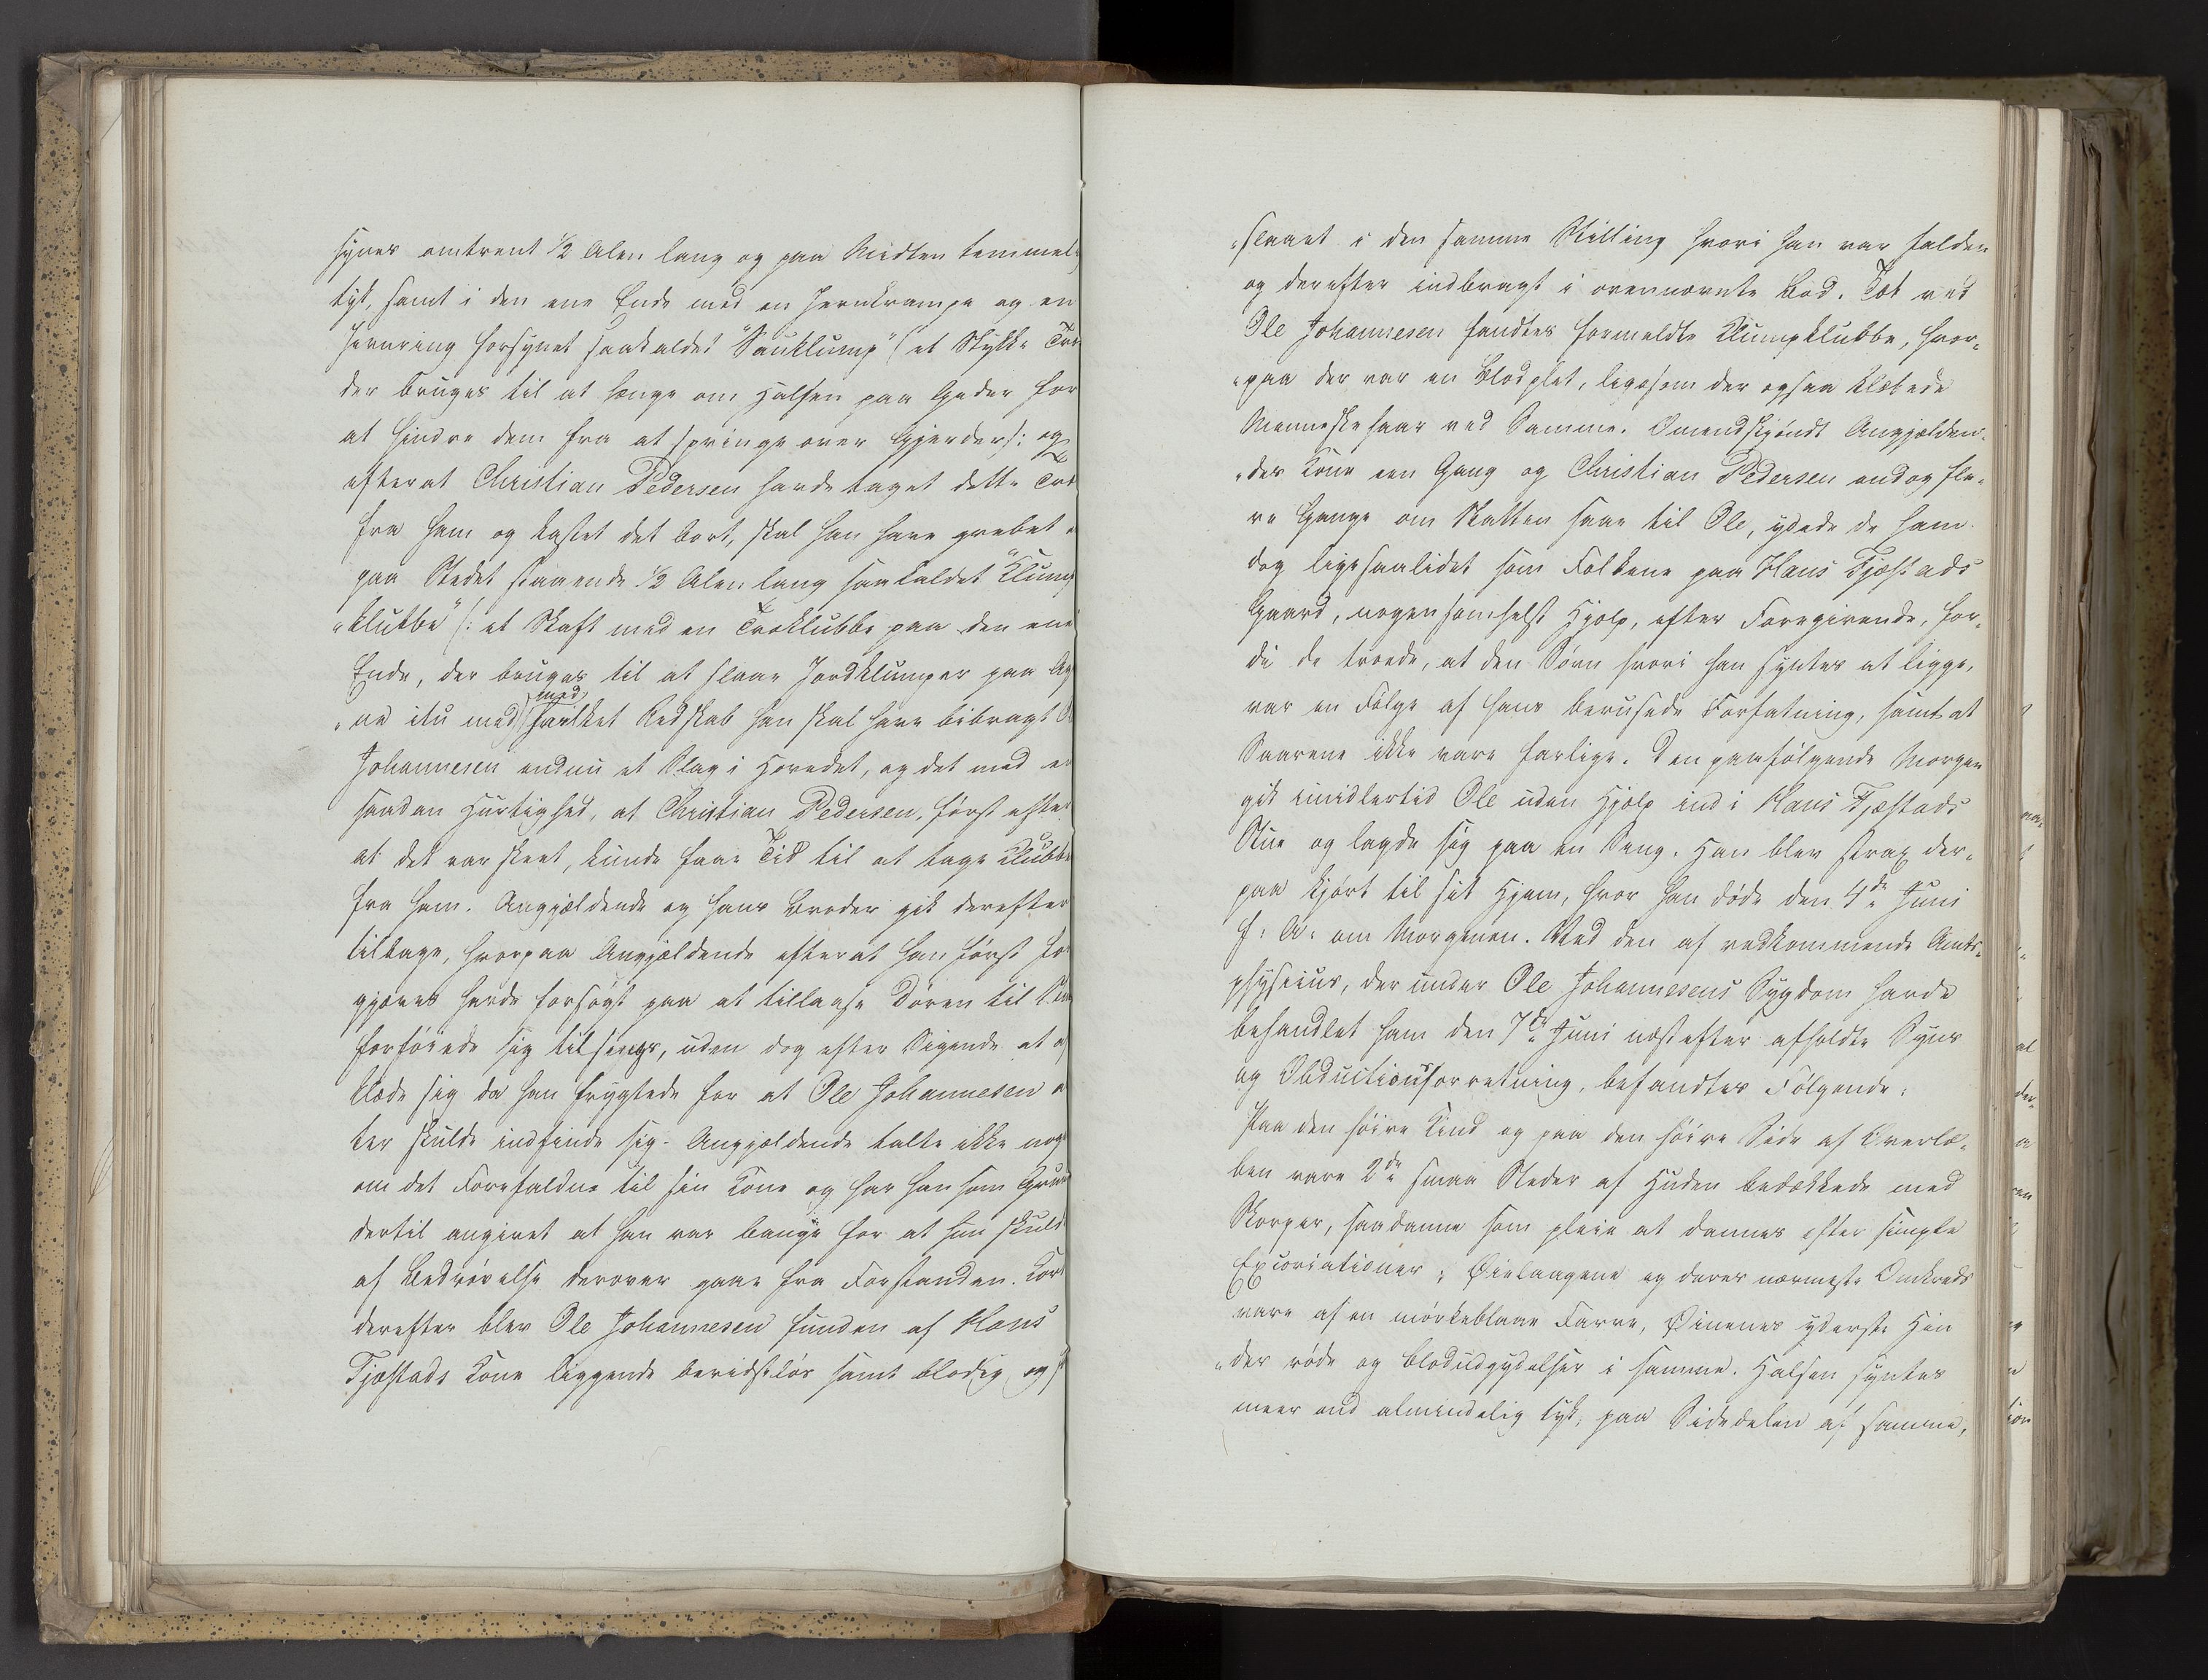 synes omtrent ½ Alen lang og paa Midten temmel
tyk, samt i den ene Ende med en Jernkrampe og en
Jernring forsynet saakaldet "Sauklump" (et Stykke Træ
der bruges til at hænge om Halsen paa Geder for
at hindre dem fra at springe over Gjerder/: og
efterat Christian Pedersen havde taget dette Træ
fra ham og kastet det bort, skal han have grebet e
paa Stedet staaende ½ Alen lang saakaldet "Klump
"klubbe" /: et Skaft med en Træklubbe paa den ene
Ende, der bruges til at slaae Jordklumper paa Ag
"ne itu med) med hvilket Redskab han skal have bibragt O
Johannesen endnu et Slag i Hovedet, og det med e
saadan Hurtighed, at Christian Pedersen, først efter
at det var skeet, kunde faae Tid til at tage Klubbe
fra ham. Angjældende og hans Broder gik derefter
tilbage, hvorpaa Angjældende efterat han først fo
gjæves havde forsøgt paa at tillaase Døren til
forføiede sig tilsengs, uden dog efter Sigende at a
klæde sig da han frygtede for at Ole Johannesen a
ter skulde indfinde sig. Angjældende talte ikke nog
om det Forefaldne til sin Kone og har han som Grun
dertil angivet at han var bange for at hun skuld
af Bedrøvelse derover gaae fra Forstanden. Kort
derefter blev Ole Johannesen funden af Hans
Tjøstads Kone liggende bevidstløs samt blodig og
"slaaet i den samme Stilling hvori han var falden
og derefter indbragt i ovennævnte Bod. Tæt ved
Ole Johannesen fandtes formeldte Klumpklubbe, hvor-
"paa der var en Blodplet, ligesom der ogsaa klæbede
Menneskehaar ved Samme. Omendskjøndt Angjælden-
"des Kone een Gang og Christian Pedersen endog fle-
re Gange om Natten saae til Ole, ydede de ham
dog ligesaalidet som Folkene paa Hans Tjøstads
Gaard, nogensomhelst Hjælp, efter Foregivende, for-
di de troede, at den Søvn hvori han syntes at ligge,
var en Følge af hans berusede Forfatning, samt at
Saarene ikke vare farlige. Den paafølgende Morgen
gik imidlertid Ole uden Hjælp ind i Hans Tjøstads
Stue og lagde sig paa en Seng. Han blev strax der-
paa kjørt til sit Hjem, hvor han døde den 4de Juni
f: A: om Morgenen. Ved den af vedkommende Amts-
physicus, der under Ole Johannesens Sygdom havde
behandlet ham den 7de Juni næstefter afholdte Syns
og Obductionsforretning, befandtes Følgende:
Paa den høire Kind og paa den høire Side af Overlæ-
ben vare 2de smaa Steder af Huden bedækkede med
Skorper, saadanne som pleie at dannes efter simple
Excoriationer; Øielaagene og deres nærmeste Omkreds
vare af en mørkeblaae Farve, Øinenes yderste Hin
"der røde og Blodudgydelser i samme. Halsen syntes
meer end almindelig tyk, paa Sidedelen af samme,